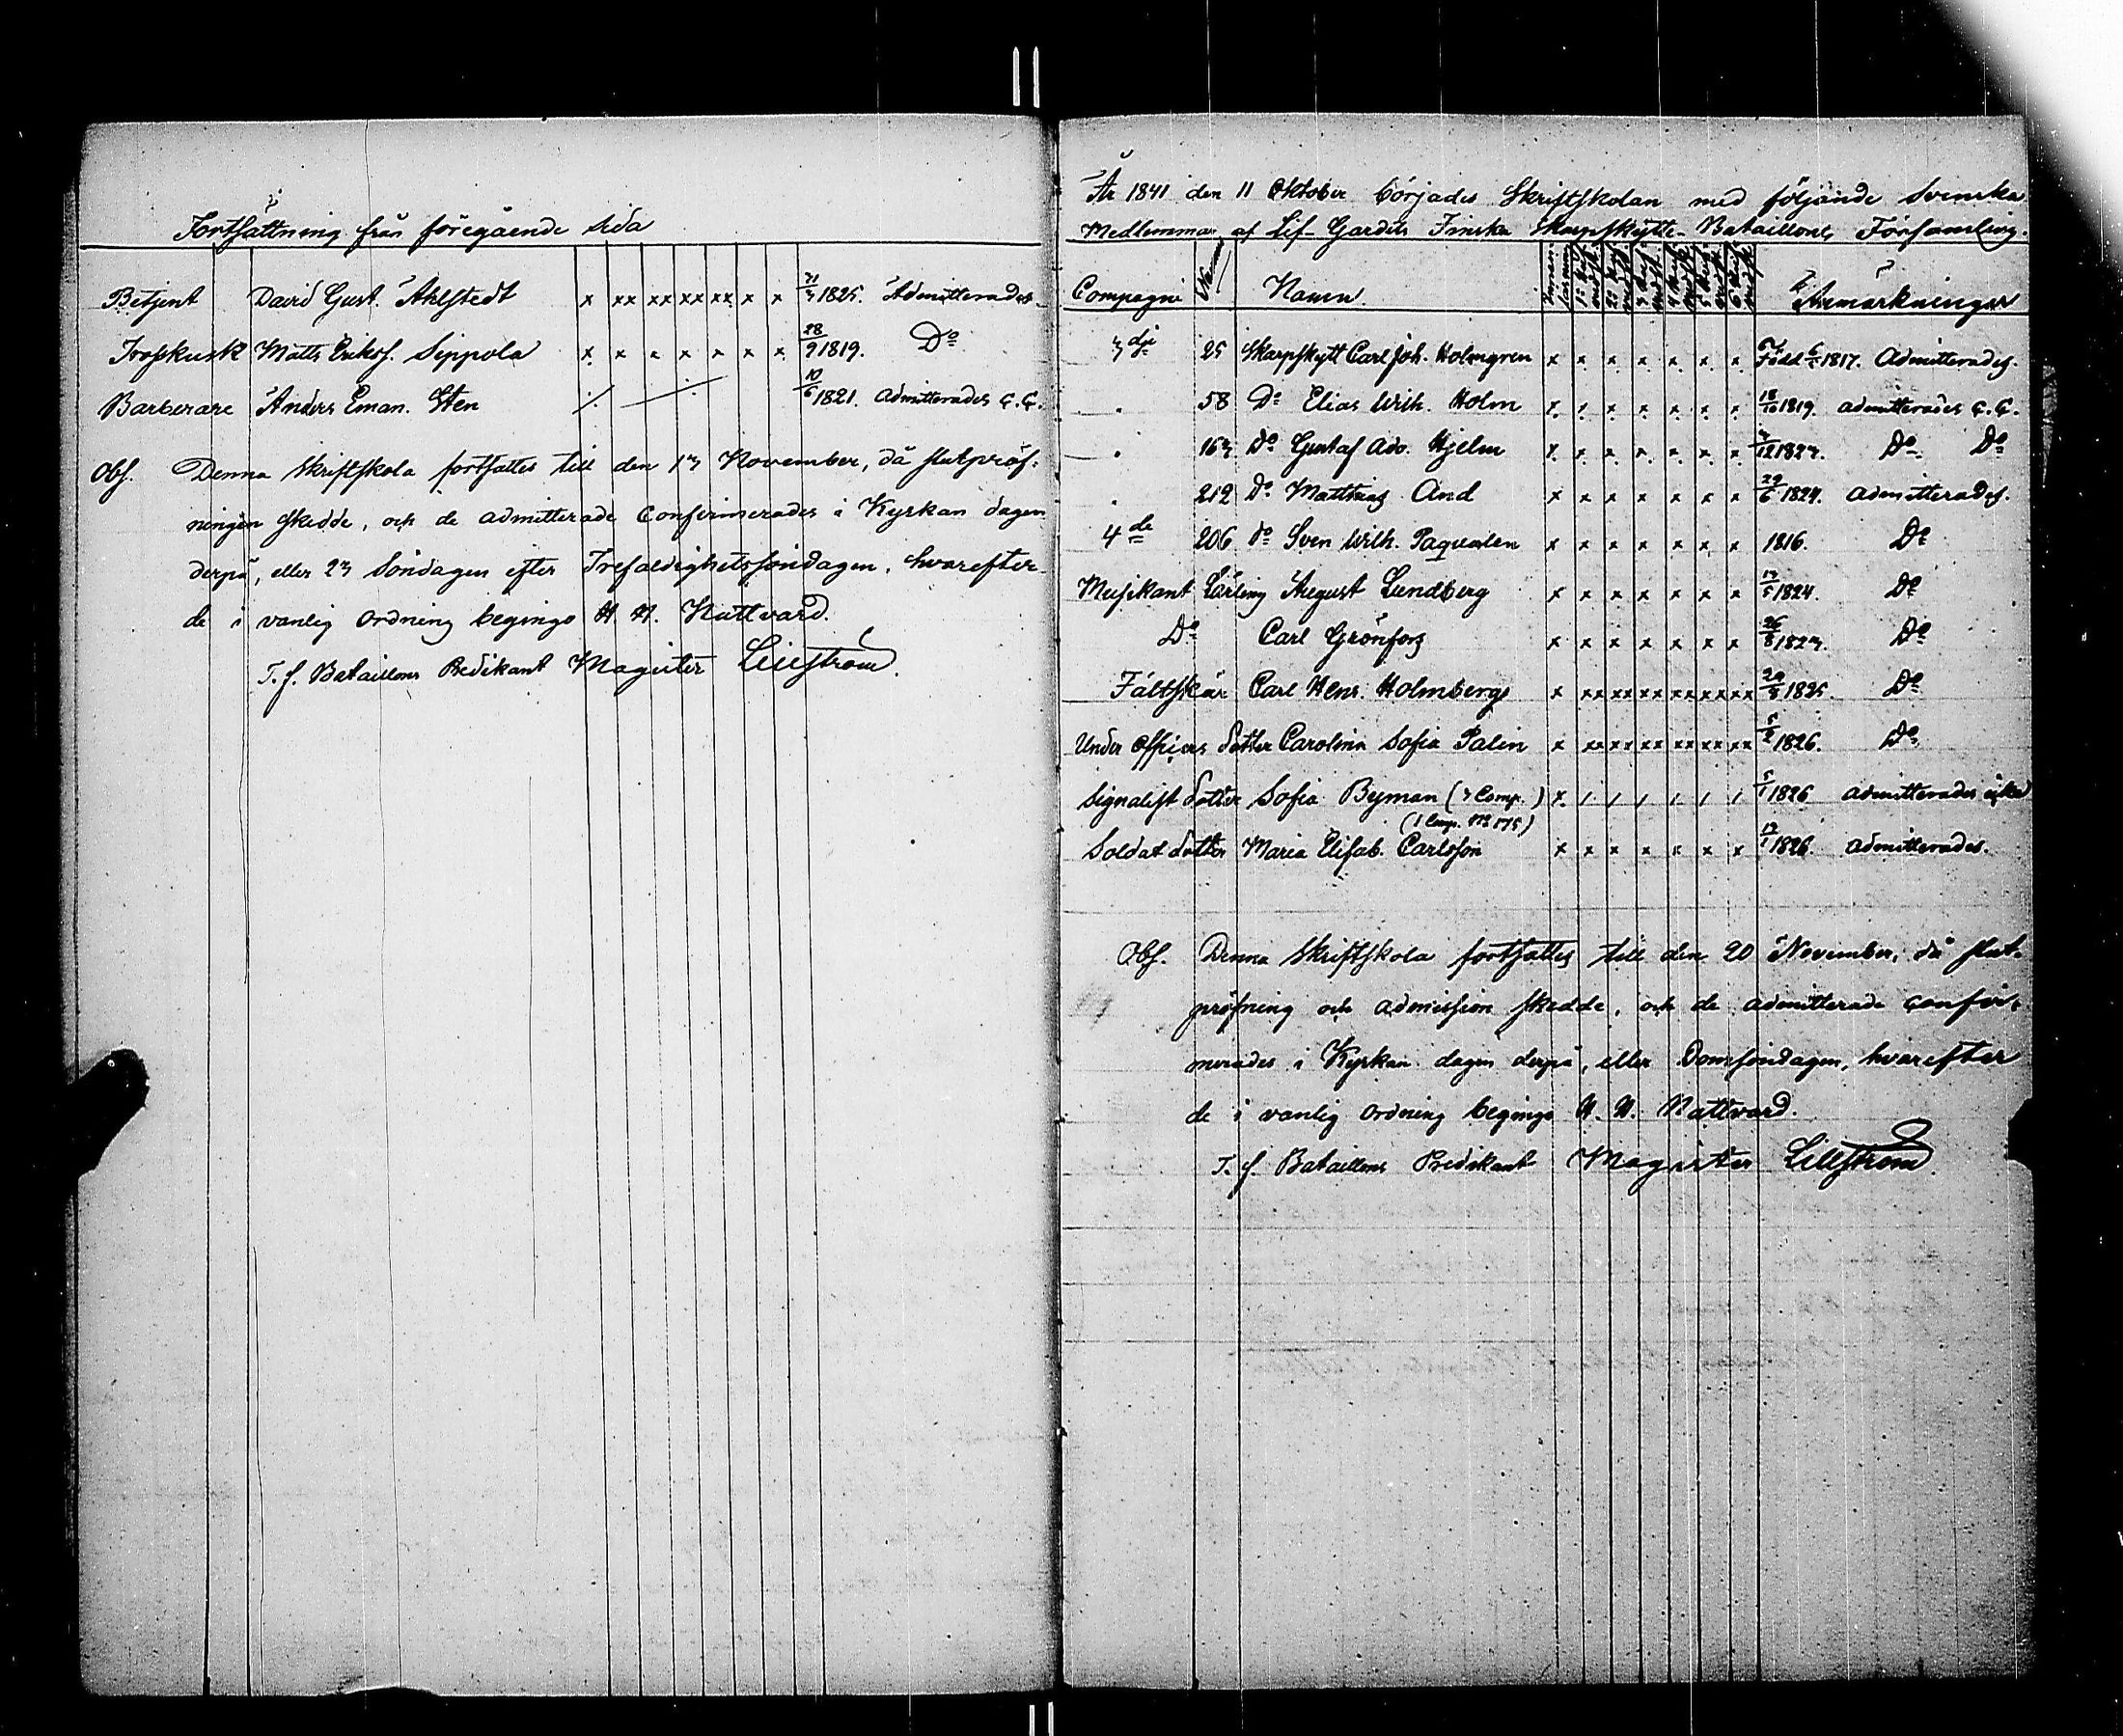 Fortsättning från föregående sida
Betjent David Gust. Ahlstedt x xx xx xx xx x x 31/3 1825. Admitterades.
Trosskusk Matts Eriksf. Seppola x x x x x x x 28/9 1819. Do
Barberare Anders Eman. Sten 10/6 1821. admitterades C.C.
Obs. Denna Skriftskola fortsattes till den 13 November, då slutpröf-
ningen skedde, och de admitterade Confirmerades i Kyrkan dagen
derpå, eller 23 Söndagen efter Trefaldighetssöndagen, hvarefter
de i vanlig ordning begingo H. H. Nattvard.
T. f. Bataillons Predikant Magister Lillström.
År 1841 den 11 Oktober börjades Skriftskolan med följande Svenska
Medlemmar af Lif-Gardets Finska Skarpskytte-Bataillons Församling.
Compagni Namn Anmärkningar
3dje 25 Skarpskytt Carl Joh. Holmgren x x x x x x x Född 1817. Admitterades.
. 58 Do Elias Wilh. Holm x x x x x x x 18/10 1819. admitterades C.C.
. 163 Do Gustaf Adv. Hjelm x x x x x x x 3/12 1823. Do Do
. 212 Do Matthias And x x x x x x x 29/6 1824. admitterades.
4de 206 do Sven Wilh. Paqvalen x x x x x x x 1816. Do
Musikant Lärling August Lundberg x x x x x x x 13/5 1824. Do
Do Carl Grönfors x x x x x x x 26/8 1823. Do
Fältskär Carl Henr. Holmberg x xx xx xx xx xx xx 1825. Do
Under Officers dotter Carolina Sofia Palin x xx xx xx xx xx xx 5/2 1826. Do
Signalist dotter Sofia Byman (3 Comp.) x / / / / / / 5/1 1826 admitterades icke
(1 Comp. No 175)
Soldat dotter Maria Elisab. Carlsson x x x x x x x 12/1 1826. admitterades.
Obs. Denna Skriftskola fortsattes till den 20 November, då slut-
pröfning och admission skedde, och de admitterade confir-
merades i Kyrkan dagen derpå, eller Domsöndagen, hvarefter
de i vanlig ordning begingo H. H. Nattvard.
T. f. Bataillons Predikant Magister Lillström